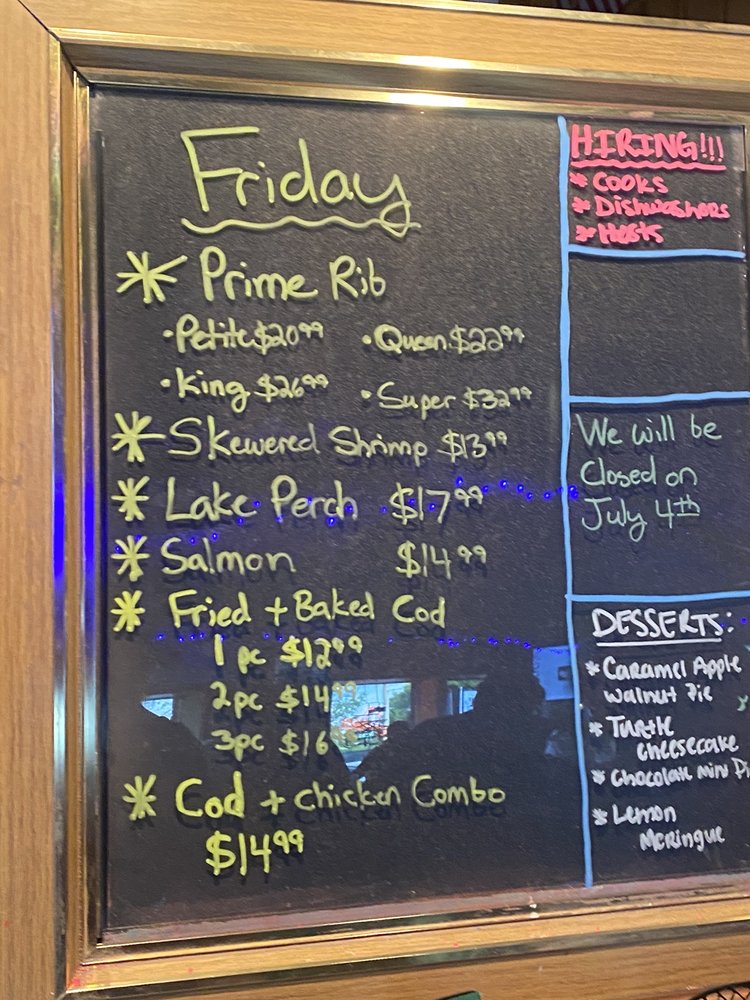 Friday
* Prime Rib
• Petite $20.99 • Queen $22.99
• King $26.99 • Super $32.99
* Skewered Shrimp $13.99
* Lake Perch $17.99
* Salmon $14.99
* Fried + Baked Cod
1 pc $12.99
2pc $14.99
3pc $16
* Cod + Chicken Combo
$14.99
HIRING!!!
* Cooks
* Dishwashers
* Hosts
We will be
Closed on
July 4th
DESSERTS:
* Caramel Apple
Walnut Pie
* Turtle
Cheesecake
* Chocolate Mint Pi
* Lemon
Meringue